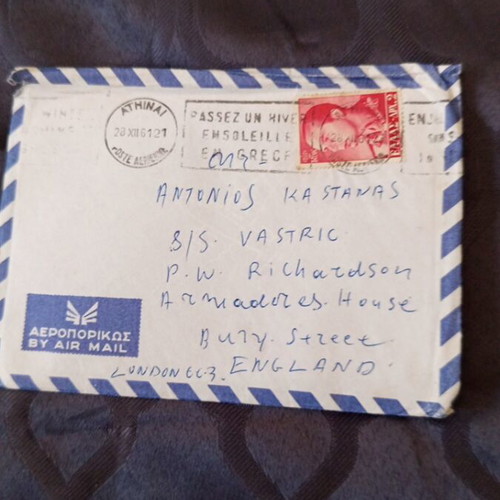 ATHINAI
28 XII 61 21
POSTE AERIENNE
PASSEZ UN HIVER
ENSOLEILLE
EN GRECE
ANTONIOS KASTANAS
S/S. VASTRIC
P.W. Richardson
Armadores. House
Bury. Street
LONDON EC3. ENGLAND.
ΑΕΡΟΠΟΡΙΚΩΣ
BY AIR MAIL